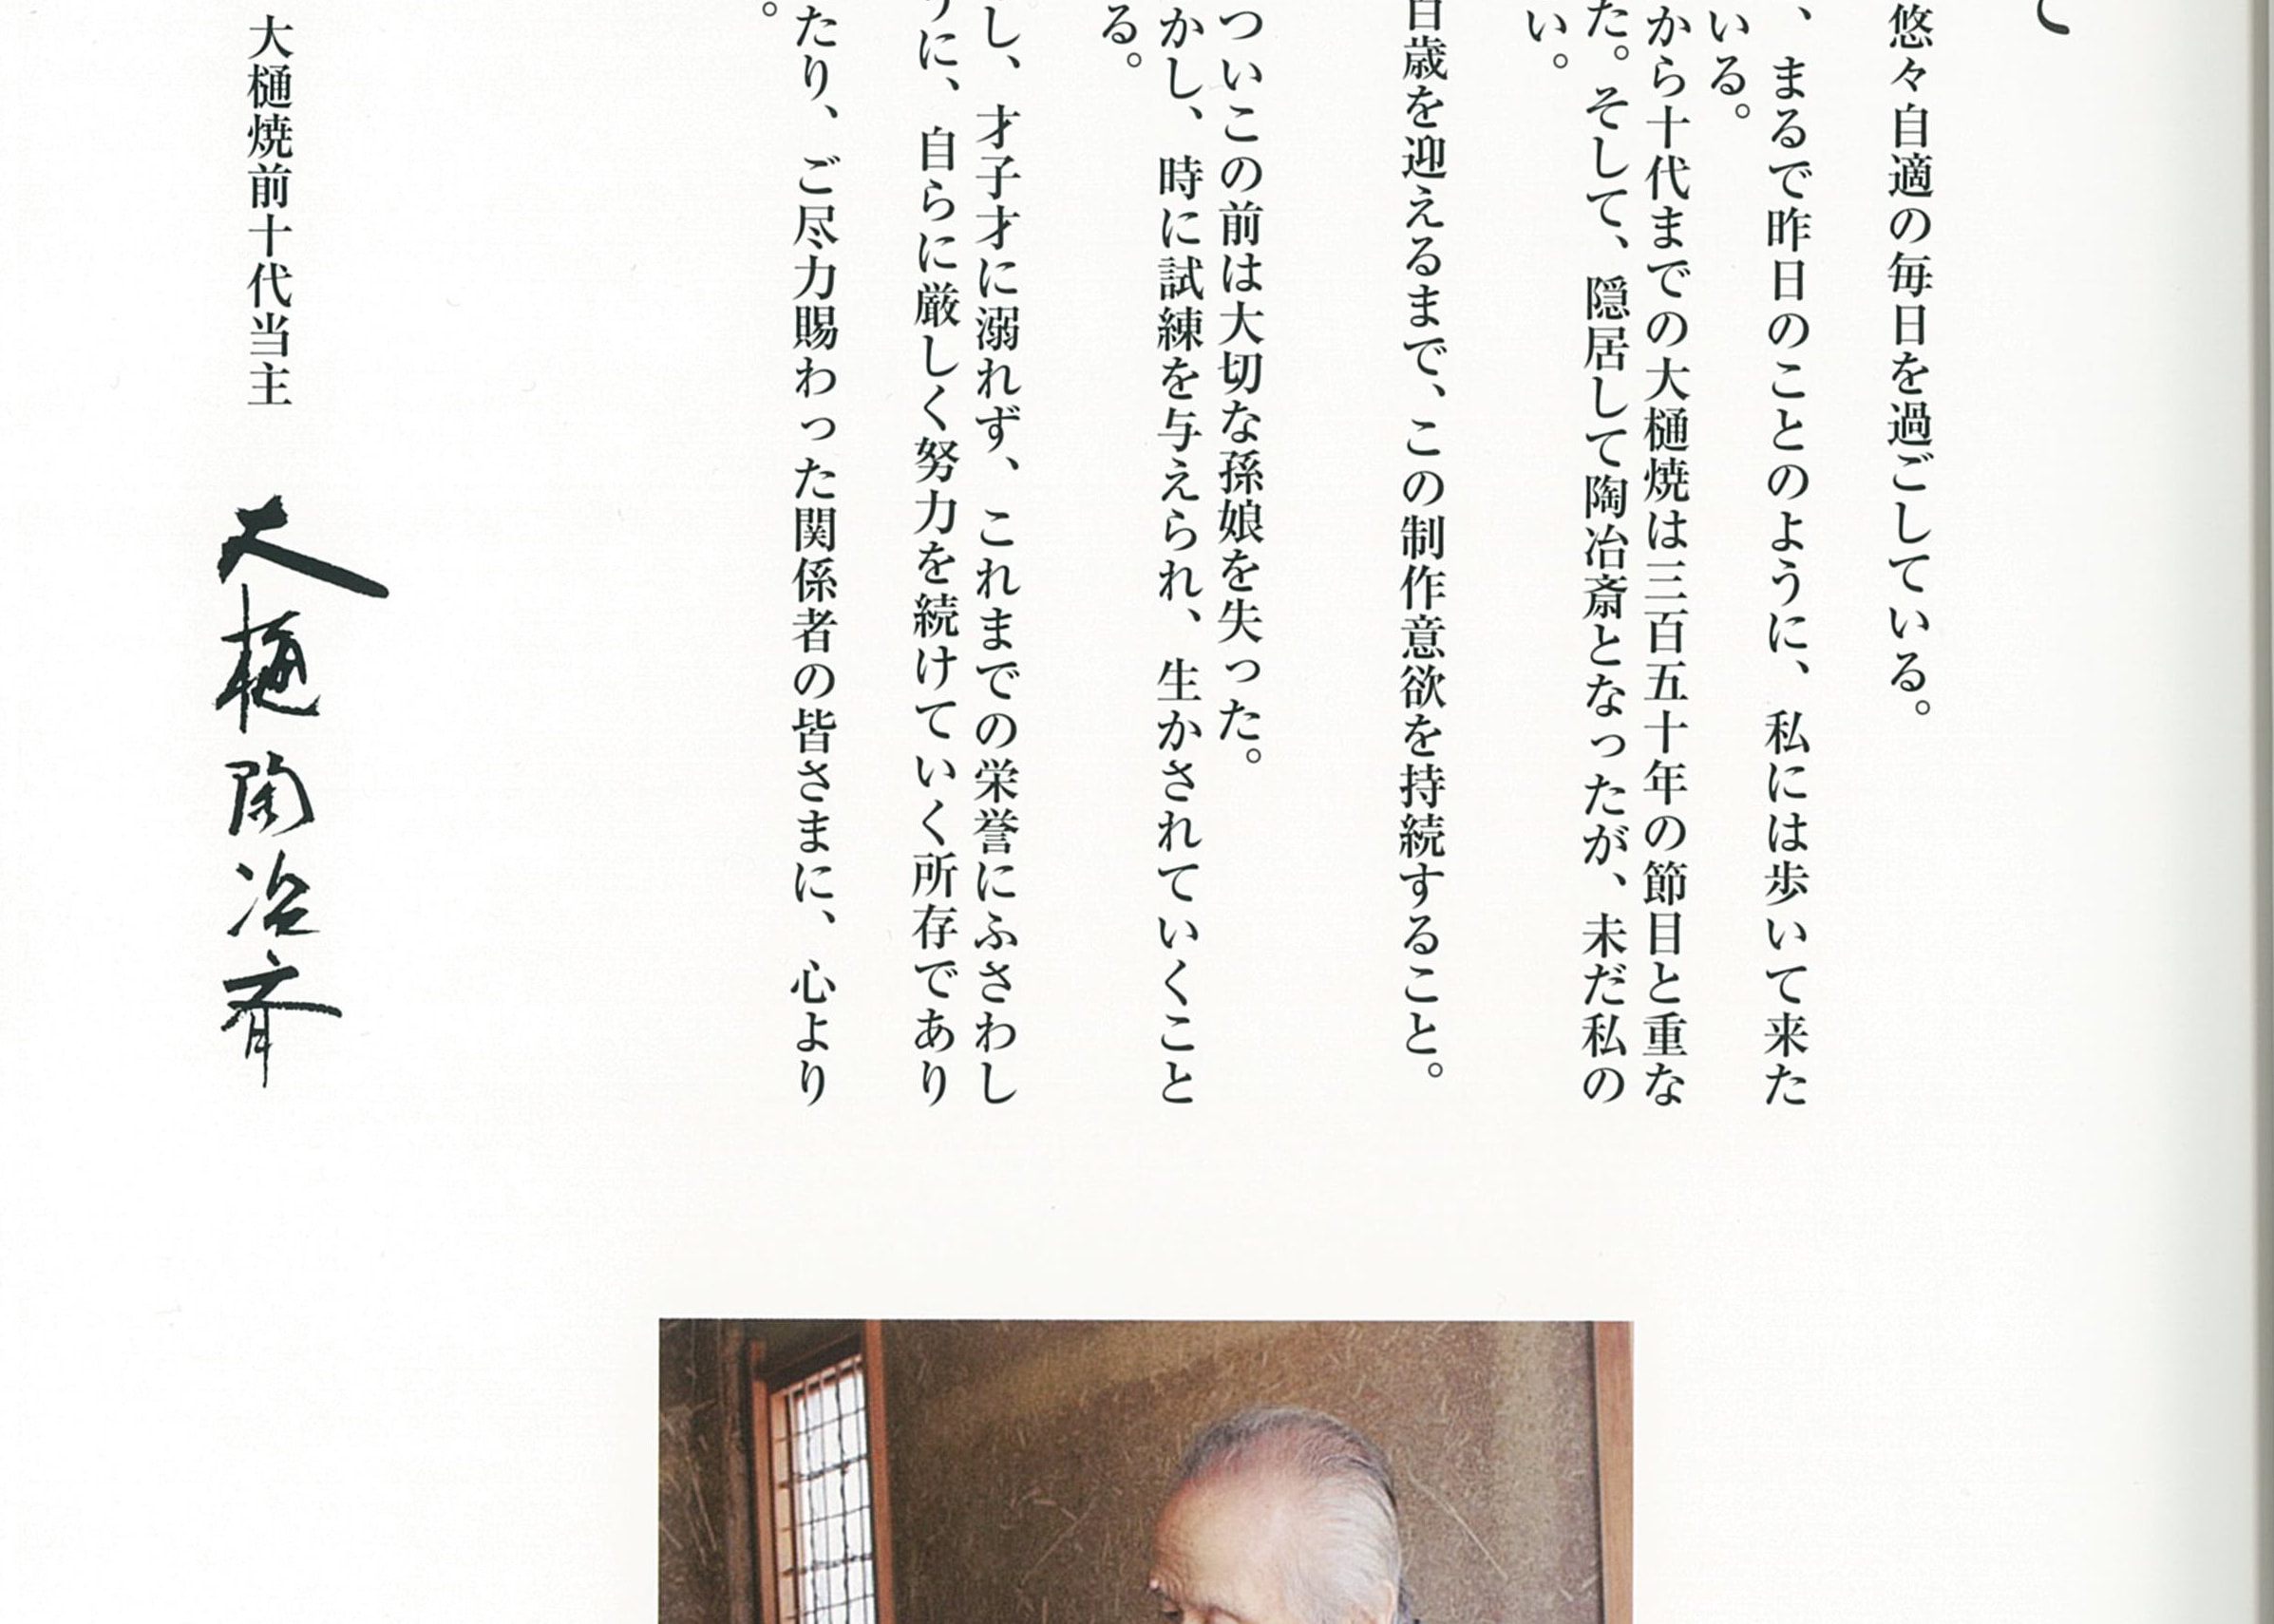 悠々自適の毎日を過ごしている。
、まるで昨日のことのように、私には歩いて来た
いる。
から十代までの大樋焼は三百五十年の節目と重な
た。そして、隠居して陶冶斎となったが、未だ私の
い。
百歳を迎えるまで、この制作意欲を持続すること。
ついこの前は大切な孫娘を失った。
かし、時に試練を与えられ、生かされていくこと
る。
し、才子才に溺れず、これまでの栄誉にふさわし
うに、自らに厳しく努力を続けていく所存であり
たり、ご尽力賜わった関係者の皆さまに、心より
。
大樋焼前十代当主
大樋陶冶斎